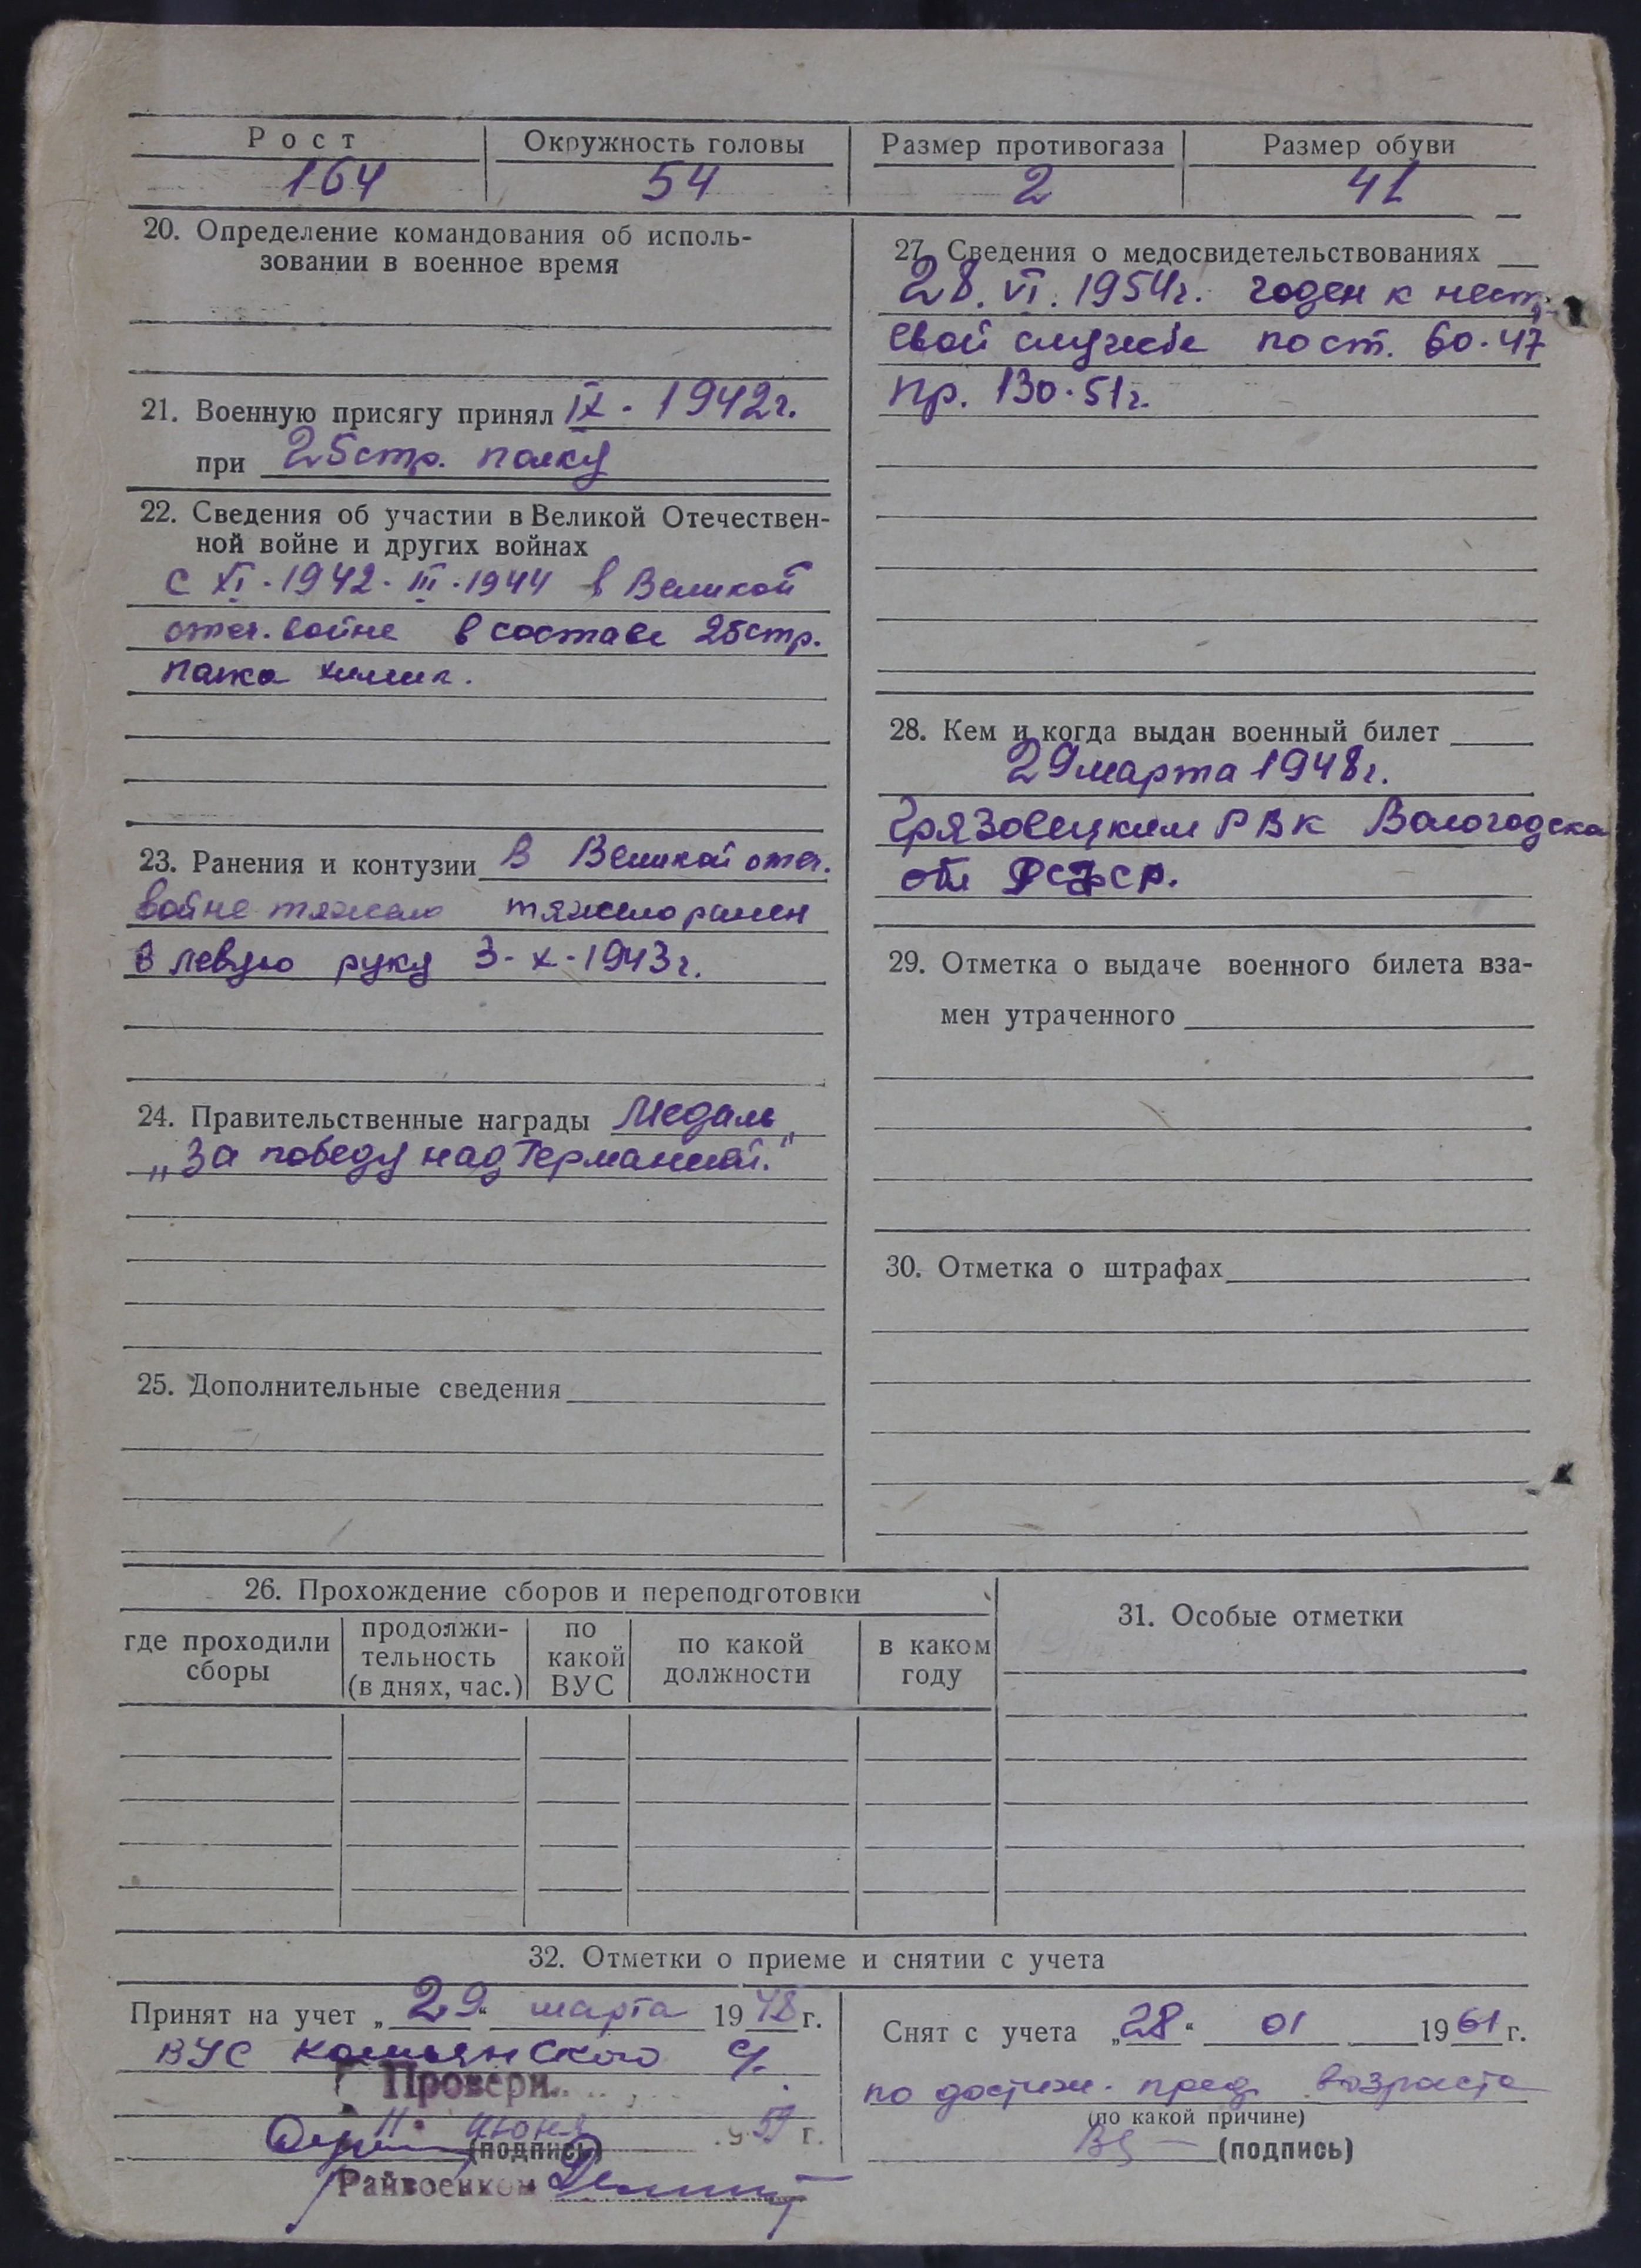 Рост
Окружность головы
Размер противогаза
Размер обуви
164
54
2
41
20. Определение командования об исполь-
зовании в военное время
21. Военную присягу принял IX. 1942г.
при 25стр. полку
22. Сведения об участии в Великой Отечествен-
ной войне и других войнах
с XI.1942. III.1944 в Великой
отеч. войне в составе 25стр.
полка
23. Ранения и контузии в Великой отеч.
войне тяжело тяжело ранен
в левую руку 3-X-1943г.
24. Правительственные награды Медаль
„За победу над Германией."
25. Дополнительные сведения
27. Сведения о медосвидетельствованиях
28. VI. 1954г. годен к нест
евой службе пост. 60.47
пр. 130.51г.
28. Кем и когда выдан военный билет
29 марта 1948г.
Грязовецким РВК Вологодска
обл РСФСР.
29. Отметка о выдаче военного билета вза-
мен утраченного
30. Отметка о штрафах
26. Прохождение сборов и переподготовки
где проходили
сборы
продолжи-
тельность
(в днях, час.)
по
какой
ВУС
по какой
должности
в каком
году
31. Особые отметки
32. Отметки о приеме и снятии с учета
Принят на учет „29" марта 1948 г.
ВУС
Провери
11 июня 59 г.
(подпись)
Райвоенком
Снят с учета „28" 01 1961 г.
по достиж. пред. возраста
(по какой причине)
(подпись)